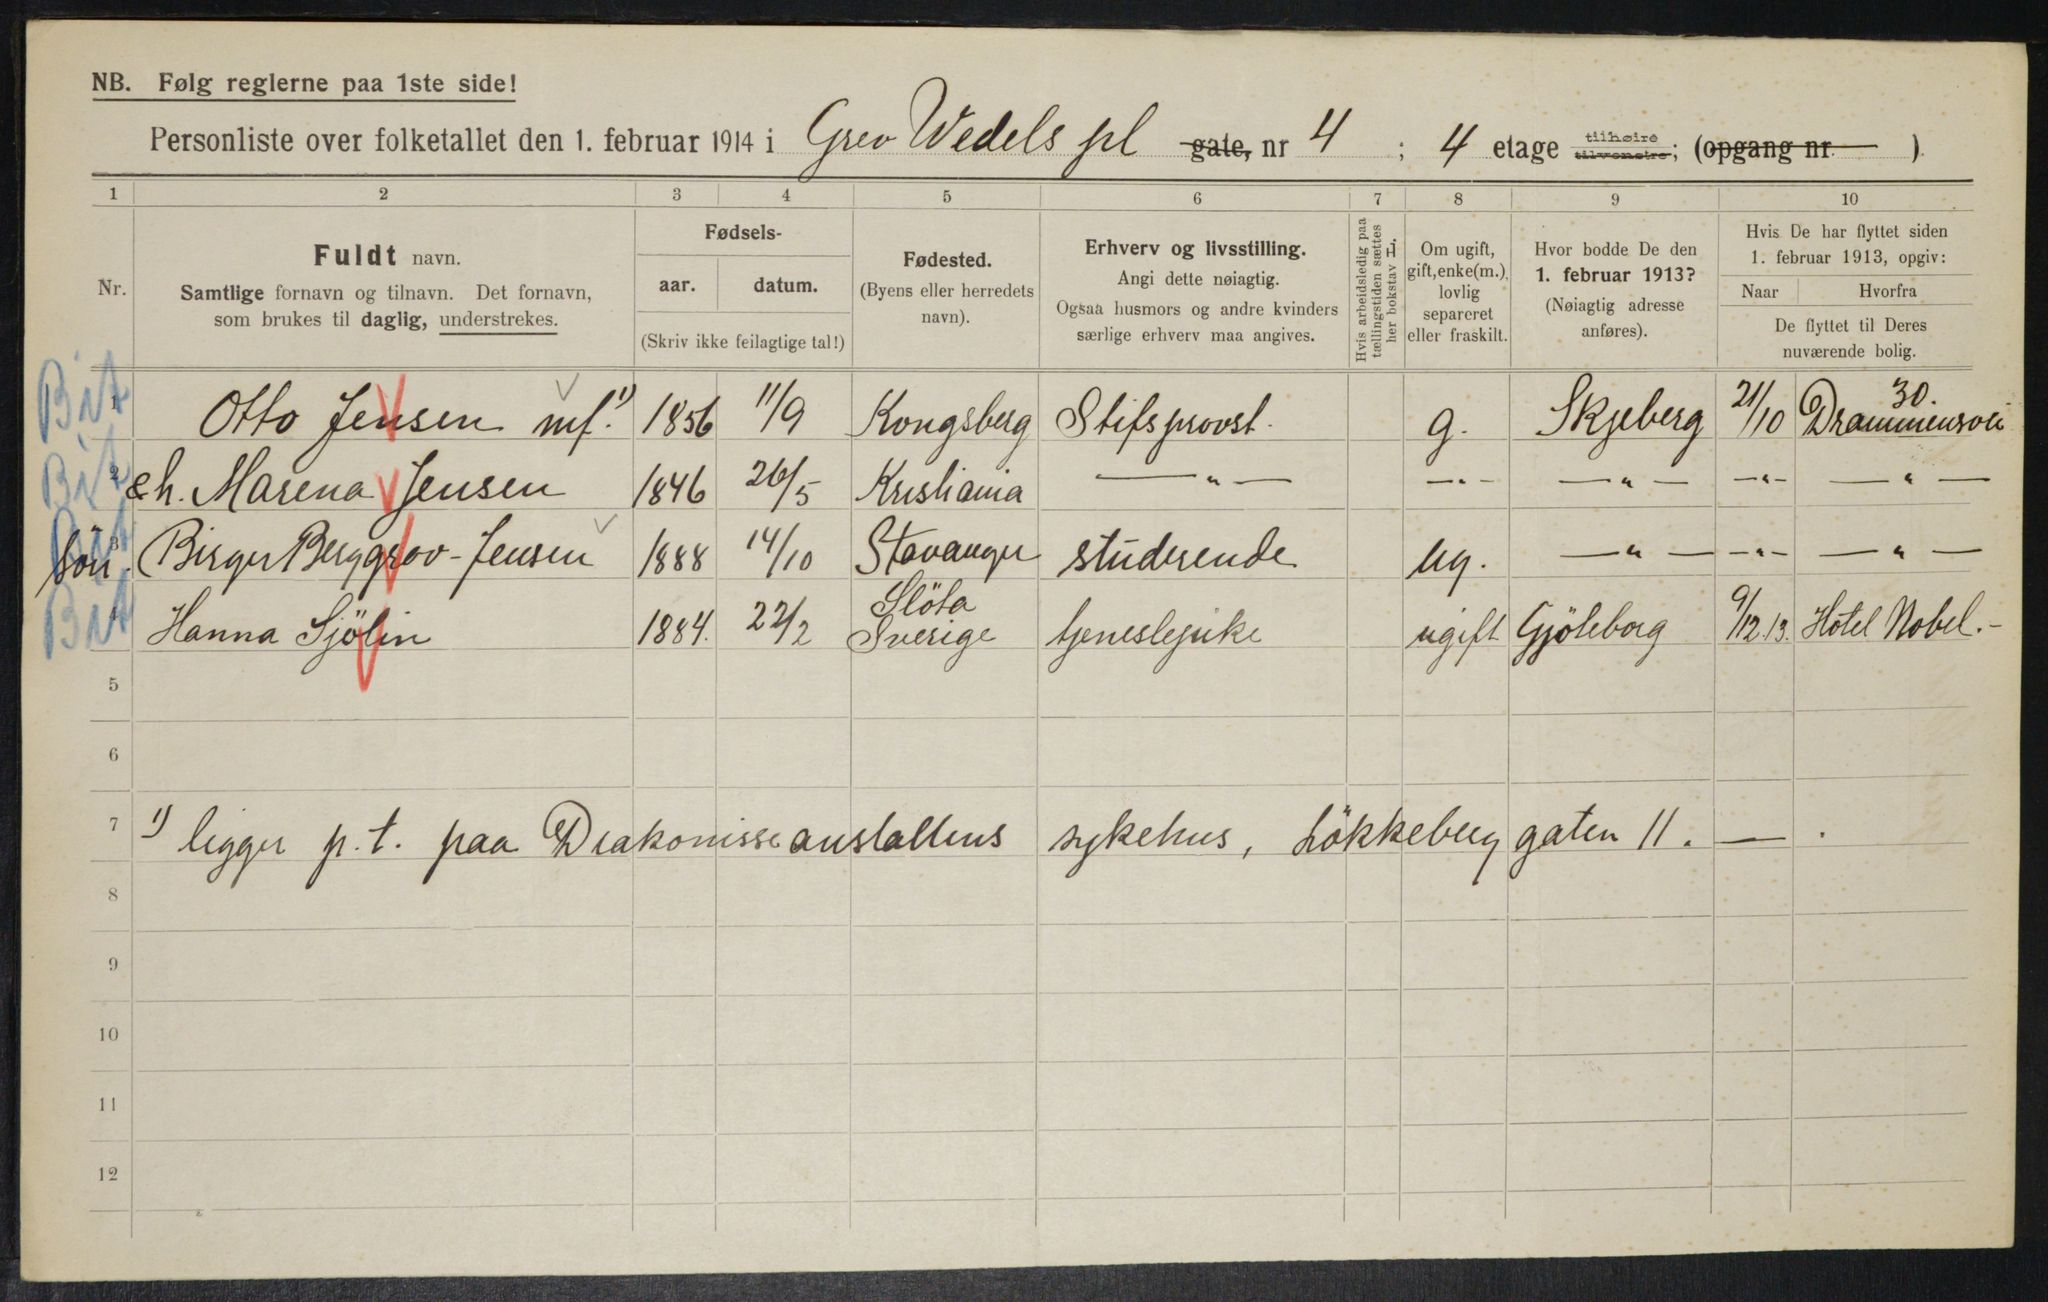 NB. Følg reglerne paa 1ste side!
Personliste over folketallet den 1. februar 1914 i Grev Wedels pl gate, nr 4 ; 4 etage tilhøire tilvenstre; (opgang nr. )
1 2 3 4 5 6 7 8 9 10
Nr.
Fuldt navn.
Samtlige fornavn og tilnavn. Det fornavn,
som brukes til daglig, understrekes.
Fødsels-
aar. datum.
(Skriv ikke feilagtige tal!)
Fødested.
(Byens eller herredets
navn).
Erhverv og livsstilling.
Angi dette nøiagtig.
Ogsaa husmors og andre kvinders
særlige erhverv maa angives.
Hvis arbeidsledig paa
tællingstiden sættes
her bokstav L.
Om ugift,
gift, enke(m.),
lovlig
separeret
eller fraskilt.
Hvor bodde De den
1. februar 1913?
(Nøiagtig adresse
anføres).
Hvis De har flyttet siden
1. februar 1913, opgiv:
Naar Hvorfra
De flyttet til Deres
nuværende bolig.
Bit 1 Otto Jensen mf. 1) 1856 11/9 Kongsberg Stifsprovst. g. Skjeberg 21/10 30. Drammensvei
Bit 2 & h. Marena Jensen 1846 26/5 Kristiania — " — — " — — " — — " — — " —
Bit 3 Sön. Birger Berggrav-Jensen 1888 14/10 Stavanger studerende ug. — " — — " — — " —
Bit 4 Hanna Sjölin 1884. 22/2 Slöta Sverige tjenestepike ugift Gjöteborg 9/12.13. Hotel Nobel.-
5
6
7 1) ligger p.t. paa Diakonisseanstaltens sykehus, Lökkeberggaten 11. — .
8
9
10
11
12